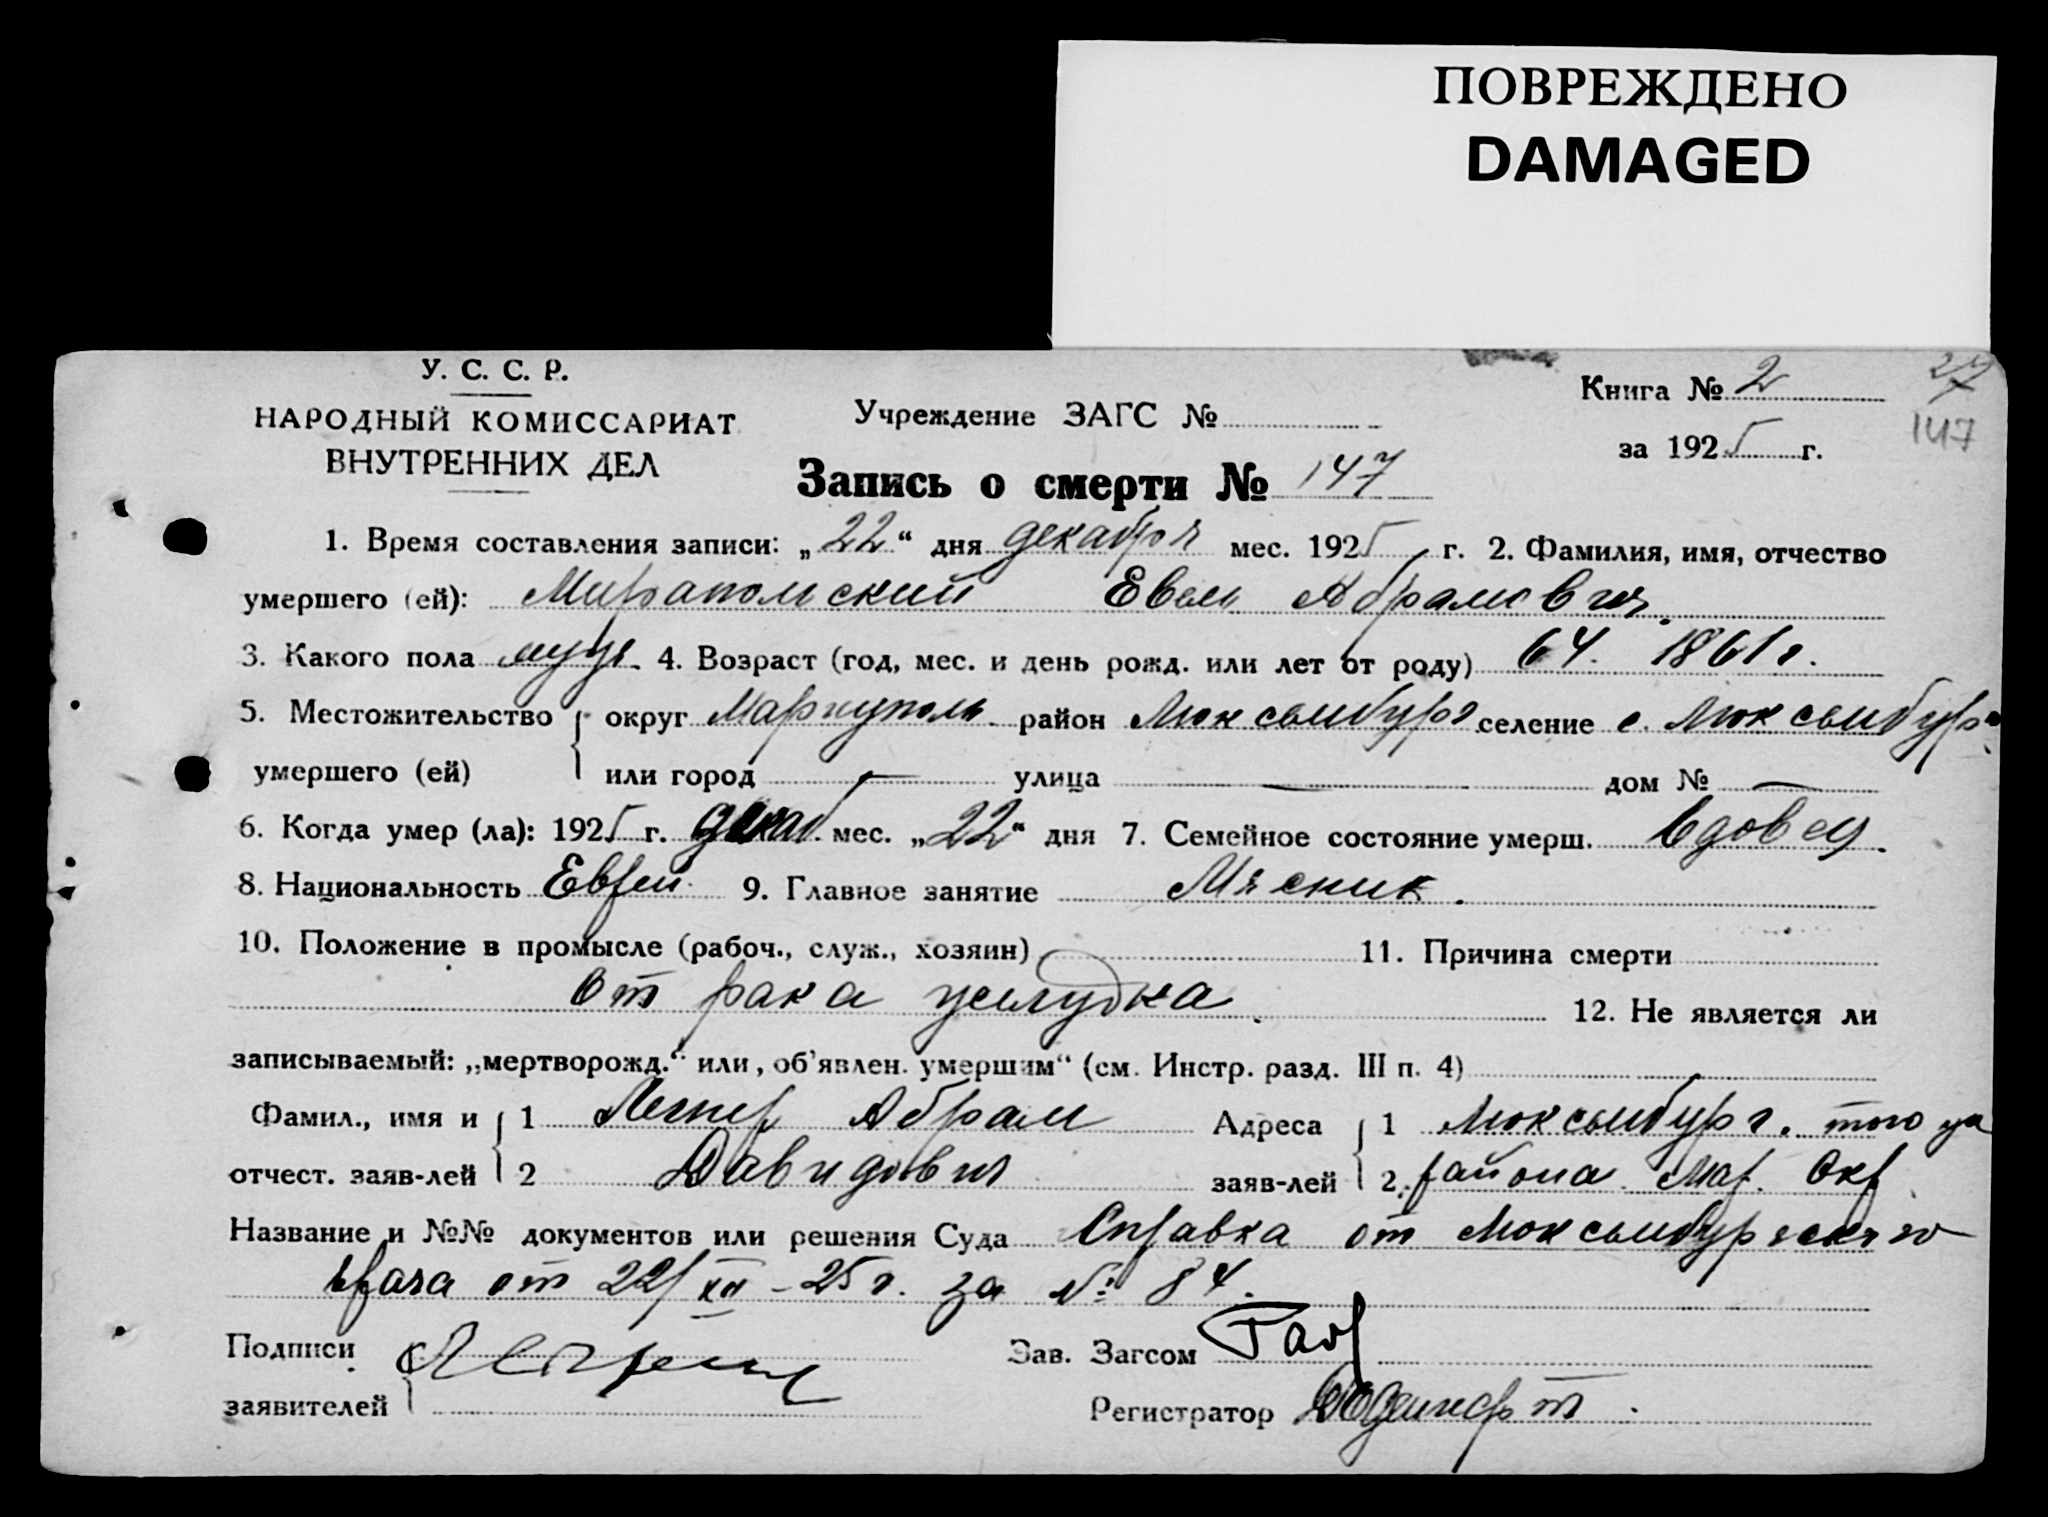 ПОВРЕЖДЕНО
DAMAGED
У. С. С. Р.
НАРОДНЫЙ КОМИССАРИАТ
ВНУТРЕННИХ ДЕЛ
Учреждение ЗАГС №
Книга № 2
27
147
за 1925 г.
Запись о смерти № 147
1. Время составления записи: „22“ дня декабря мес. 1925 г. 2. Фамилия, имя, отчество
умершего (ей): Мирапольский Евель Абрамович.
3. Какого пола муж. 4. Возраст (год, мес. и день рожд. или лет от роду) 64. 1861 г.
5. Местожительство округ Мариуполь район Люксембург селение с. Люксембург
умершего (ей) или город — улица — дом № —
6. Когда умер (ла): 1925 г. декаб. мес. „22“ дня 7. Семейное состояние умерш. вдовец.
8. Национальность Еврей 9. Главное занятие Мясник.
10. Положение в промысле (рабоч., служ., хозяин) 11. Причина смерти
от рака желудка. 12. Не является ли
записываемый: „мертворожд.“ или „об'явлен. умершим“ (см. Инстр. разд. III п. 4)
Фамил., имя и 1 Абрам Адреса 1 Люксембург. того же
отчест. заяв-лей 2 Давидович заяв-лей 2. района Мар. Окр.
Название и №№ документов или решения Суда Справка от Люксембургского
врача от 22/XII-25 г. за №: 84.
Подписи
Зав. Загсом
заявителей
Регистратор